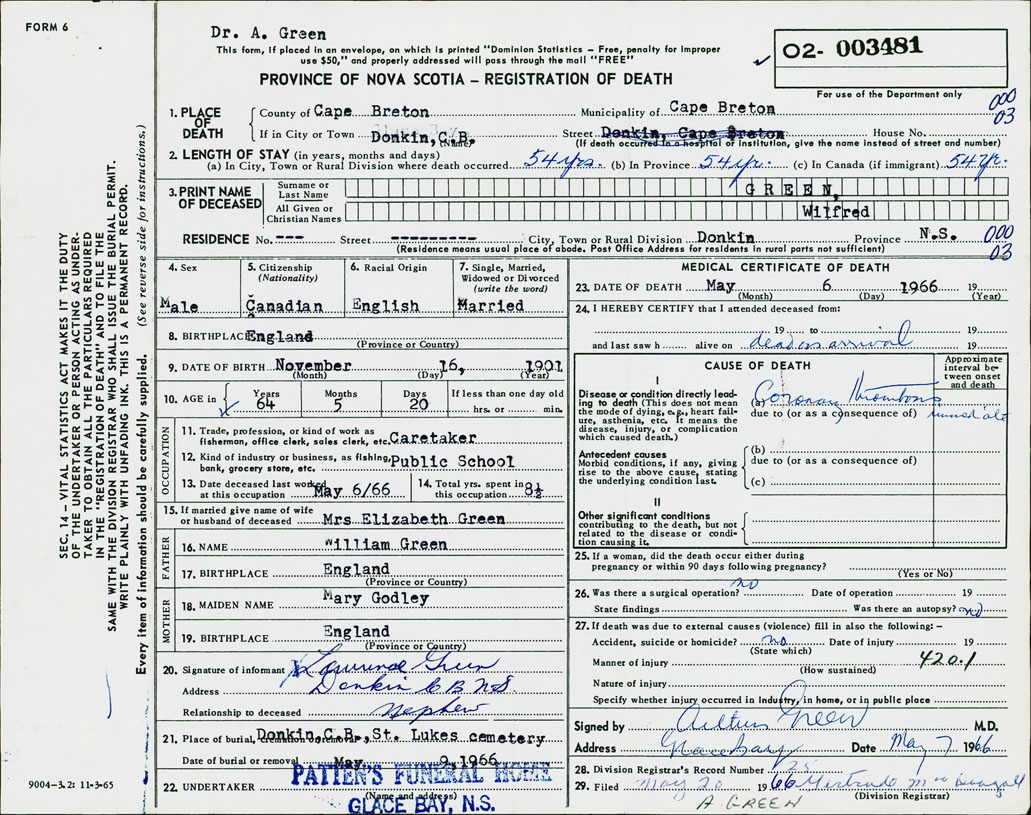 FORM 6
Dr. A. Green
This form, if placed in an envelope, on which is printed "Dominion Statistics – Free, penalty for improper
use $50," and properly addressed will pass through the mail "FREE"
PROVINCE OF NOVA SCOTIA – REGISTRATION OF DEATH
02- 003481
For use of the Department only
000
03
1. PLACE OF DEATH
County of Cape Breton Municipality of Cape Breton
If in City or Town Donkin, C.B. (Name) Street Donkin, Cape Breton House No.
(If death occurred in a hospital or institution, give the name instead of street and number)
2. LENGTH OF STAY (in years, months and days)
(a) In City, Town or Rural Division where death occurred 54 yrs. (b) In Province 54 yr. (c) In Canada (if immigrant) 54 yr.
3. PRINT NAME OF DECEASED
Surname or Last Name GREEN,
All Given or Christian Names Wilfred
RESIDENCE No. --- Street --------- City, Town or Rural Division Donkin Province N.S.
(Residence means usual place of abode. Post Office Address for residents in rural parts not sufficient)
000
03
4. Sex
Male
5. Citizenship (Nationality)
Canadian
6. Racial Origin
English
7. Single, Married, Widowed or Divorced (write the word)
Married
8. BIRTHPLACE England
(Province or Country)
9. DATE OF BIRTH November 16, 1901
(Month) (Day) (Year)
10. AGE in Years Months Days If less than one day old
64 5 20 hrs. or min.
OCCUPATION
11. Trade, profession, or kind of work as
fisherman, office clerk, sales clerk, etc. Caretaker
12. Kind of industry or business, as fishing,
bank, grocery store, etc. Public School
13. Date deceased last worked
at this occupation May 6/66
14. Total yrs. spent in
this occupation 8½
15. If married give name of wife
or husband of deceased Mrs Elizabeth Green
FATHER
16. NAME William Green
17. BIRTHPLACE England
(Province or Country)
MOTHER
18. MAIDEN NAME Mary Godley
19. BIRTHPLACE England
(Province or Country)
20. Signature of informant X Lawrence Green
Address Donkin C B N.S.
Relationship to deceased nephew
21. Place of burial, cremation or removal Donkin, C.B., St. Lukes cemetery
Date of burial or removal May 9, 1966
22. UNDERTAKER PATTEN'S FUNERAL HOME
(Name and address)
GLACE BAY, N.S.
MEDICAL CERTIFICATE OF DEATH
23. DATE OF DEATH May 6 1966 19
(Month) (Day) (Year)
24. I HEREBY CERTIFY that I attended deceased from:
19 to 19
and last saw h alive on dead on arrival 19
CAUSE OF DEATH
Approximate interval between onset and death
I
Disease or condition directly leading to death (This does not mean the mode of dying, e.g., heart failure, asthenia, etc. It means the disease, injury, or complication which caused death.)
(a) Coronary Thrombosis
due to (or as a consequence of) immediate
Antecedent causes
Morbid conditions, if any, giving rise to the above cause, stating the underlying condition last.
(b)
due to (or as a consequence of)
(c)
II
Other significant conditions
contributing to the death, but not related to the disease or condition causing it.
25. If a woman, did the death occur either during
pregnancy or within 90 days following pregnancy?
(Yes or No)
26. Was there a surgical operation? no Date of operation 19
State findings Was there an autopsy? no
27. If death was due to external causes (violence) fill in also the following: –
Accident, suicide or homicide? no Date of injury 19
(State which)
Manner of injury 420.1
(How sustained)
Nature of injury
Specify whether injury occurred in industry, in home, or in public place
Signed by Arthur Green M.D.
Address Glace Bay Date May 7 1966
28. Division Registrar's Record Number 25
29. Filed May 20 1966 Gertrude
(Division Registrar)
A GREEN
SEC. 14 – VITAL STATISTICS ACT MAKES IT THE DUTY
OF THE UNDERTAKER OR PERSON ACTING AS UNDER-
TAKER TO OBTAIN ALL THE PARTICULARS REQUIRED
IN THE "REGISTRATION OF DEATH" AND TO FILE THE
SAME WITH THE DIVISION REGISTRAR WHO SHALL ISSUE THE BURIAL PERMIT.
WRITE PLAINLY WITH UNFADING INK. THIS IS A PERMANENT RECORD.
Every item of information should be carefully supplied. (See reverse side for instructions.)
9004–3.2: 11-3-65